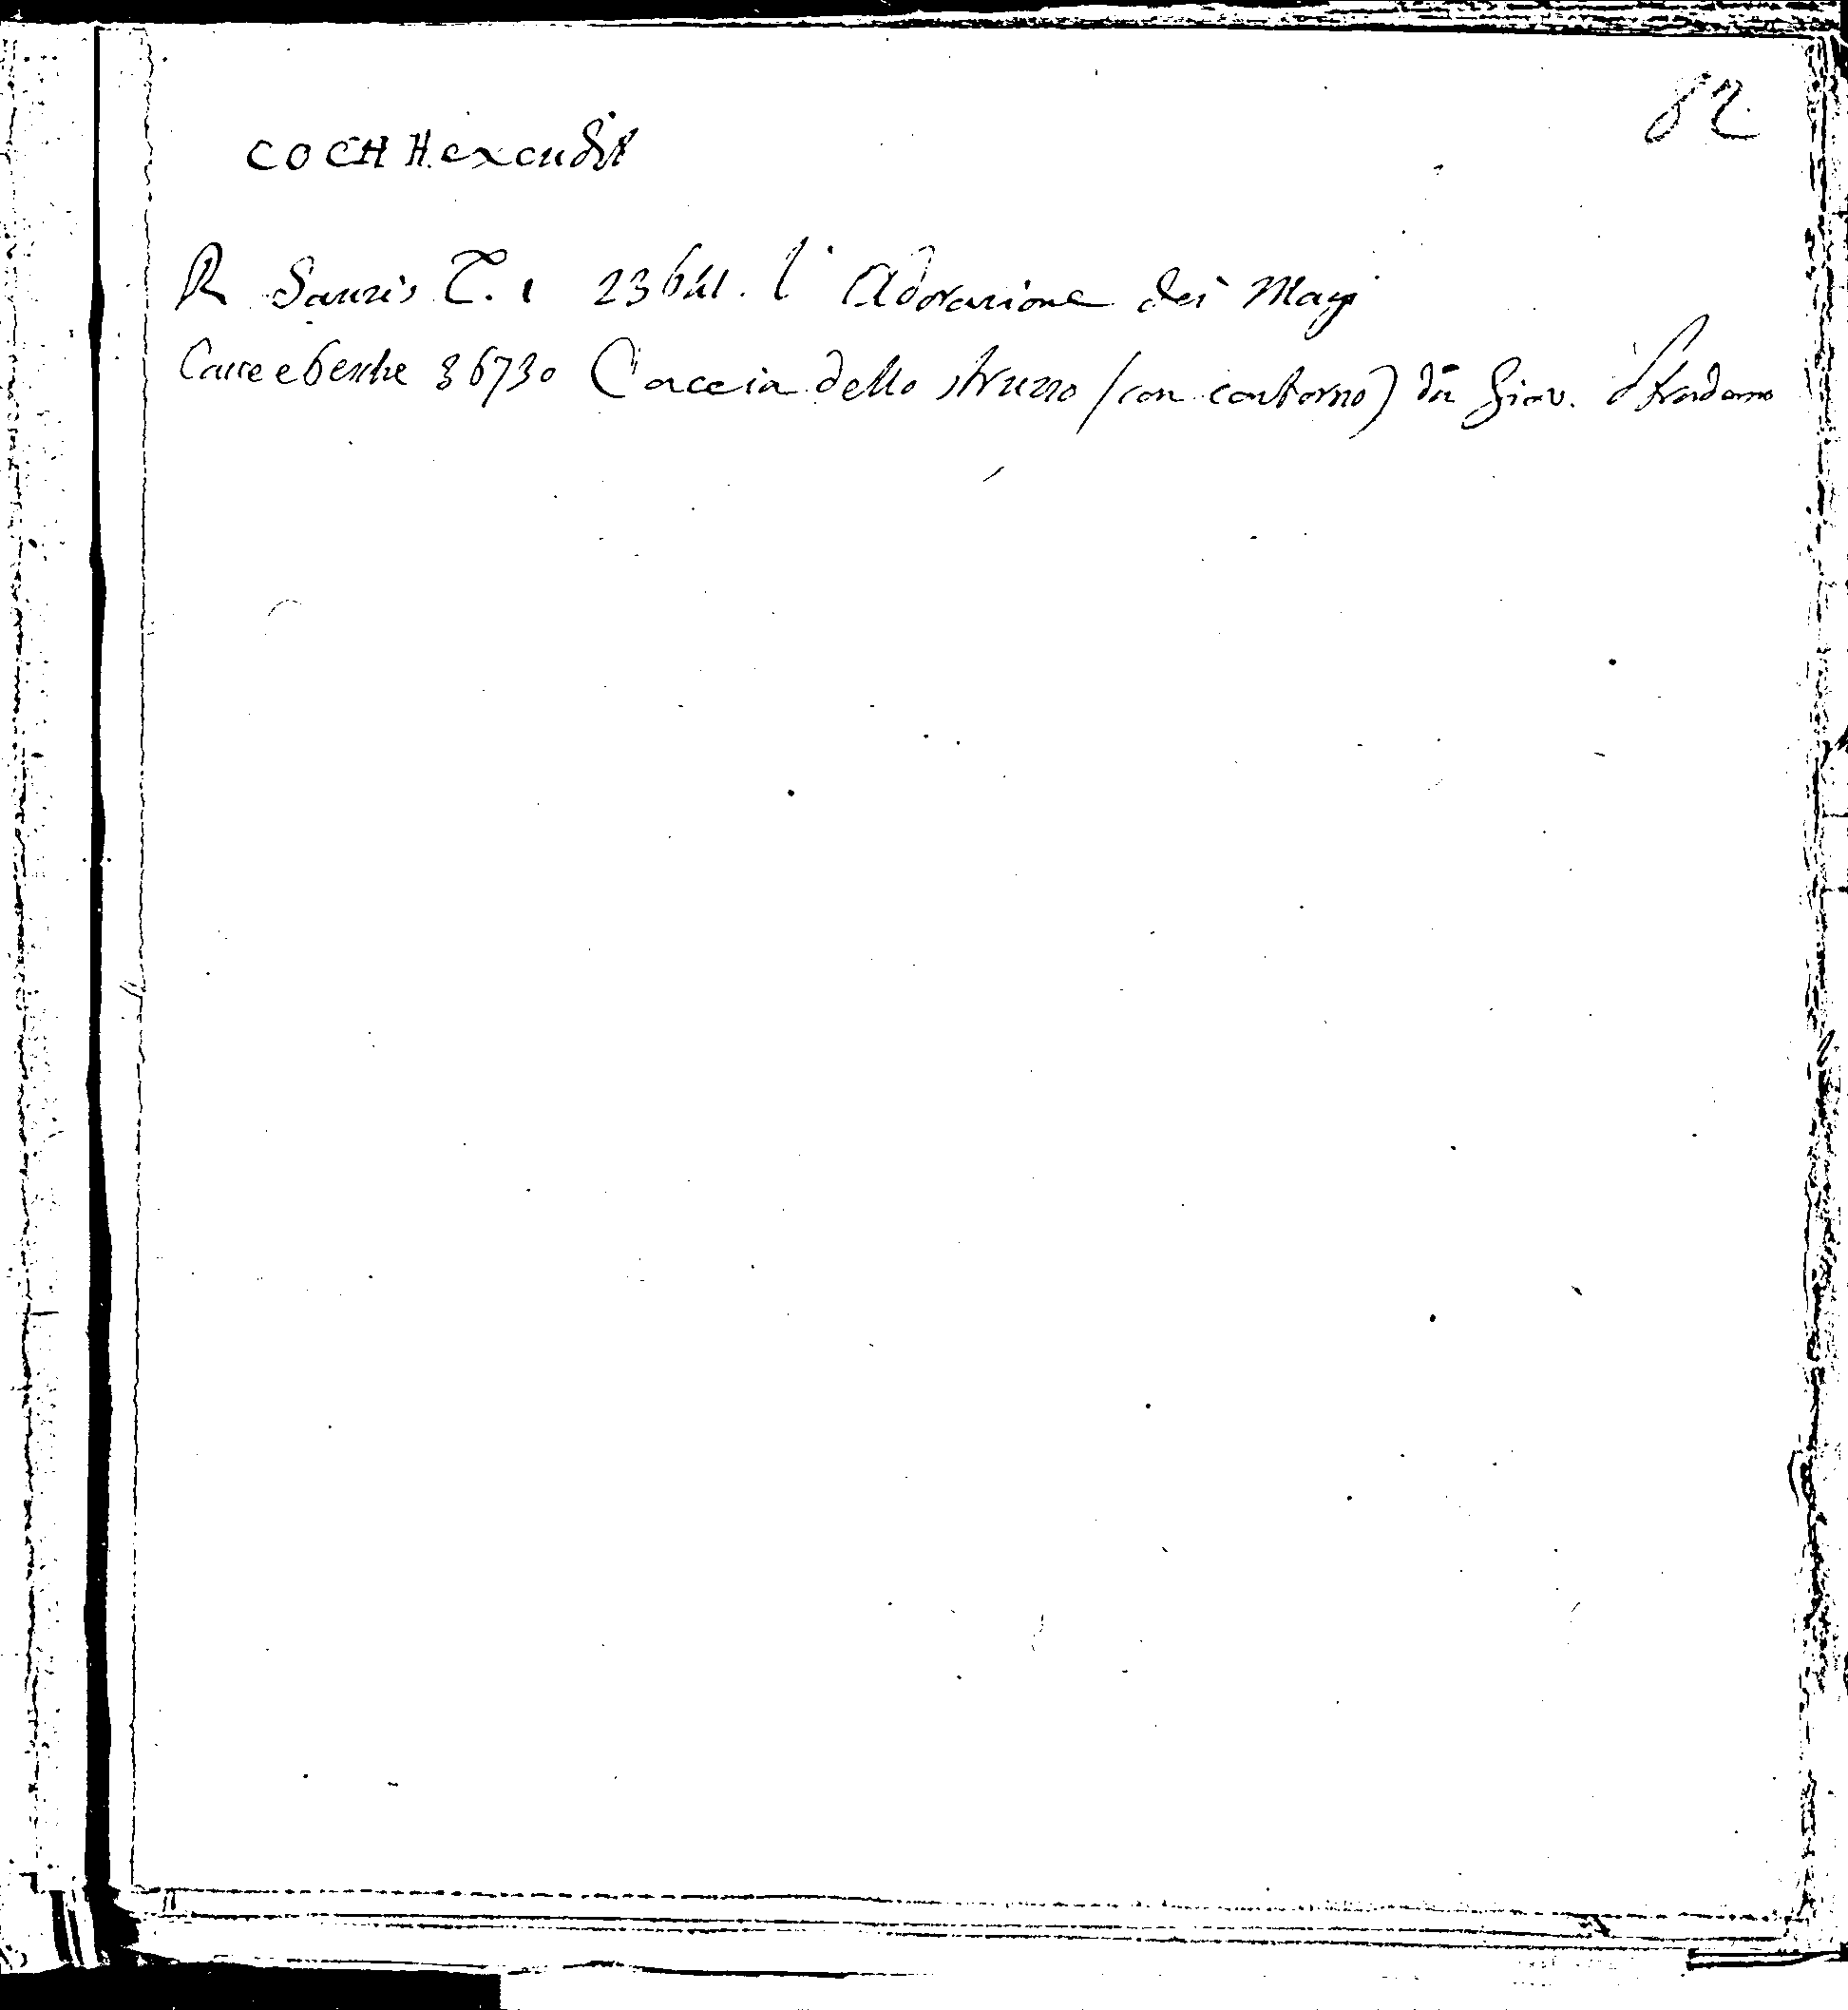 82
COCH H. excudit
R Sanzio T. 1 23641. l'Adorazione dei Magi
Cacce e pesche 36730 Caccia dello struzzo (con contorno) da Giov. Stradano